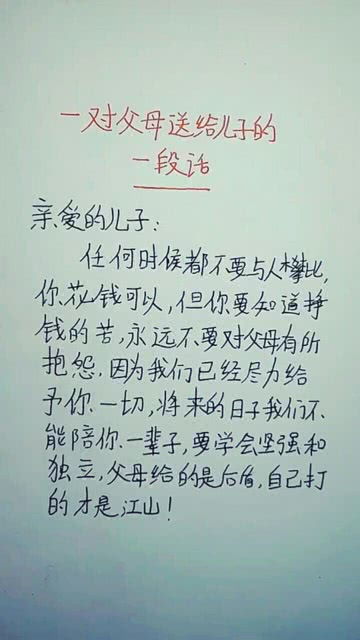 一对父母送给儿子的
一段话
亲爱的儿子:
任何时候都不要与人攀比,
你花钱可以,但你要知道挣
钱的苦,永远不要对父母有所
抱怨,因为我们已经尽力给
予你一切,将来的日子我们不
能陪你一辈子,要学会坚强和
独立,父母给的是后盾,自己打
的才是江山!